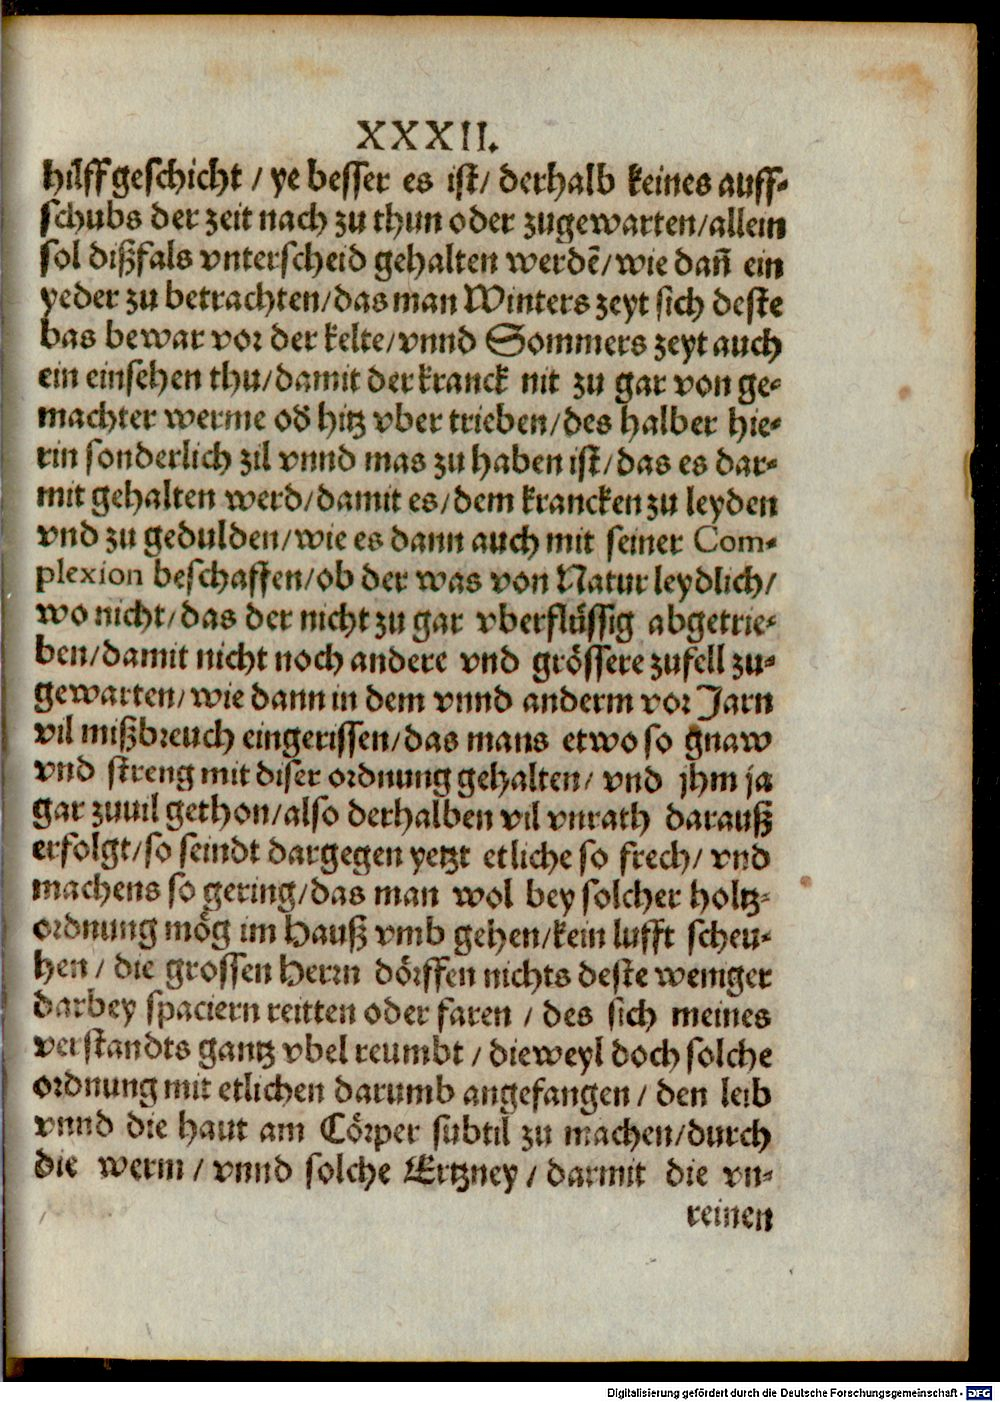 XXXII.
hilff geschicht / ye besser es ist / derhalb keines auff-
schubs der zeit nach zu thun oder zugewarten / allein
sol dißfals vnterscheid gehalten werdē / wie dañ ein
yeder zu betrachten / das man Winters zeyt sich deste
bas bewar vor der kelte / vnnd Sommers zeyt auch
ein einsehen thu / damit der kranck nit zu gar von ge-
machter werme od̛ hitz vber trieben / des halber hie-
rin sonderlich zil vnnd mas zu haben ist / das es dar-
mit gehalten werd / damit es / dem krancken zu leyden
vnd zu gedulden / wie es dann auch mit seiner Com-
plexion beschaffen / ob der was von Natur leydlich /
wo nicht / das der nicht zu gar vberflüssig abgetrie-
ben / damit nicht noch andere vnd grössere zufell zu-
gewarten / wie dann in dem vnnd anderm vor Jarn
vil mißbreuch eingerissen / das mans etwo so gnaw
vnd streng mit diser ordnung gehalten / vnd jhm ja
gar zuuil gethon / also derhalben vil vnrath darauß
erfolgt / so seindt dargegen yetzt etliche so frech / vnd
machens so gering / das man wol bey solcher holtz-
ordnung mög im Hauß vmb gehen / kein lufft scheu-
hen / die grossen Herrn dörffen nichts deste weniger
darbey spaciern reitten oder faren / des sich meines
verstandts gantz vbel reumbt / dieweyl doch solche
ordnung mit etlichen darumb angefangen / den leib
vnnd die haut am Cörper subtil zu machen / durch
die werm / vnnd solche Ertzney / darmit die vn-
reinen
Digitalisierung gefördert durch die Deutsche Forschungsgemeinschaft - DFG